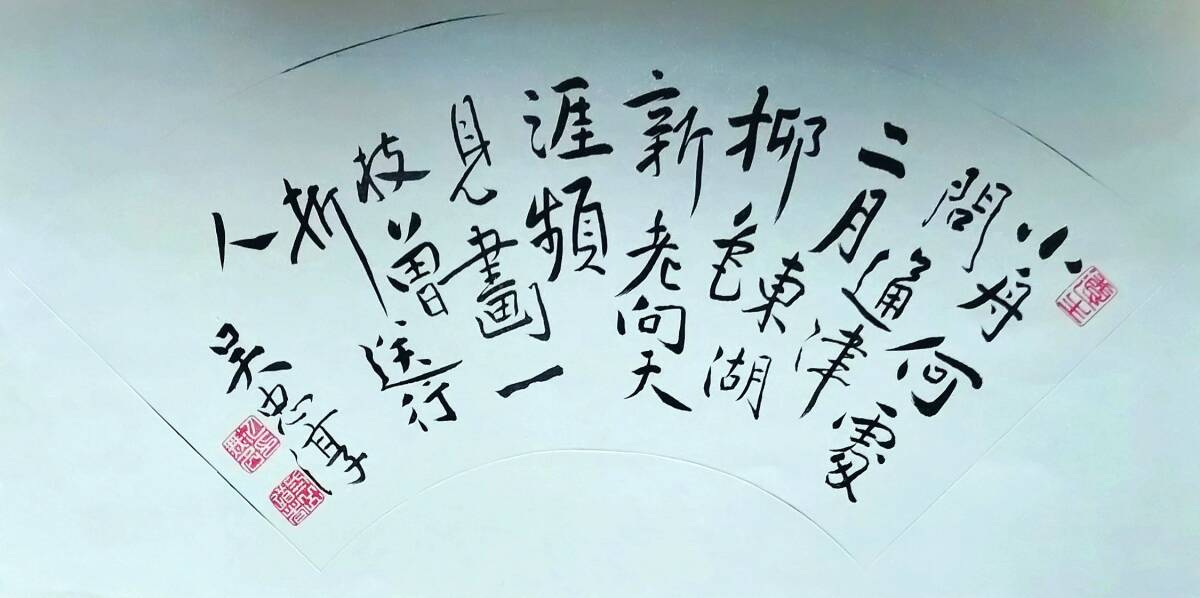 小舟何處
問通津
二月東湖
柳色
新老向天
涯頻
見畫一
枝曾
折送行
人
吳忠淳